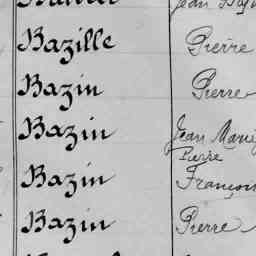 Bazille Pierre
Bazin Pierre
Bazin Jean Marie
Pierre
Bazin François
Bazin Pierre